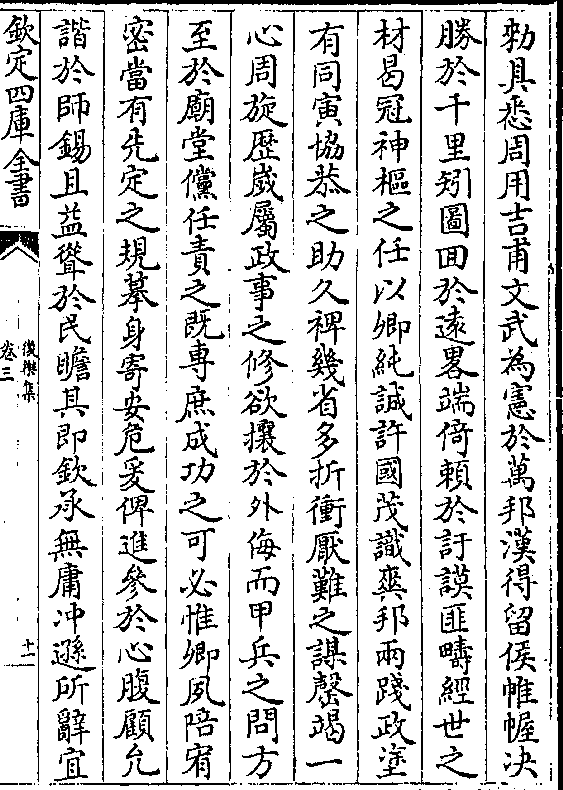 勅具悉周用吉甫文武為憲於萬邦漢得留侯帷幄决
勝於千里矧圖回於逺畧端倚頼於訏謨匪疇經世之
材曷冠神樞之任以卿純誠許國茂識㢤邦兩踐政塗
有同寅協恭之助久裨幾省多折衝厭難之謀罄竭一
心周旋歴嵗屬政事之修欲攘於外侮而甲兵之問方
至於廟堂儻任責之既專庶成功之可必惟卿夙陪宥
密當有先定之規摹身寄安危爰俾進參於心腹顧允
諧於師錫且益聳於民瞻其即欽承無庸冲遜所辭宜
欽定四庫全書
復齋集
卷三
十一